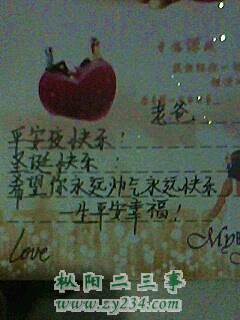 幸福
老爸:
平安夜快乐!
圣诞快乐!
希望你永远帅气永远快乐
一生平安幸福!
Love
My
枞阳二三事
www.zy234.com